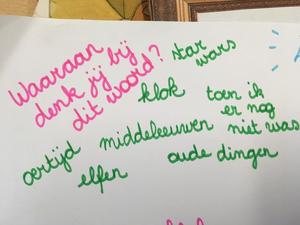 Waaraan
denk jij bij
dit woord?
star
wars
klok
toen ik
er nog
niet was
oertijd
middeleeuwen
elfen
oude dingen